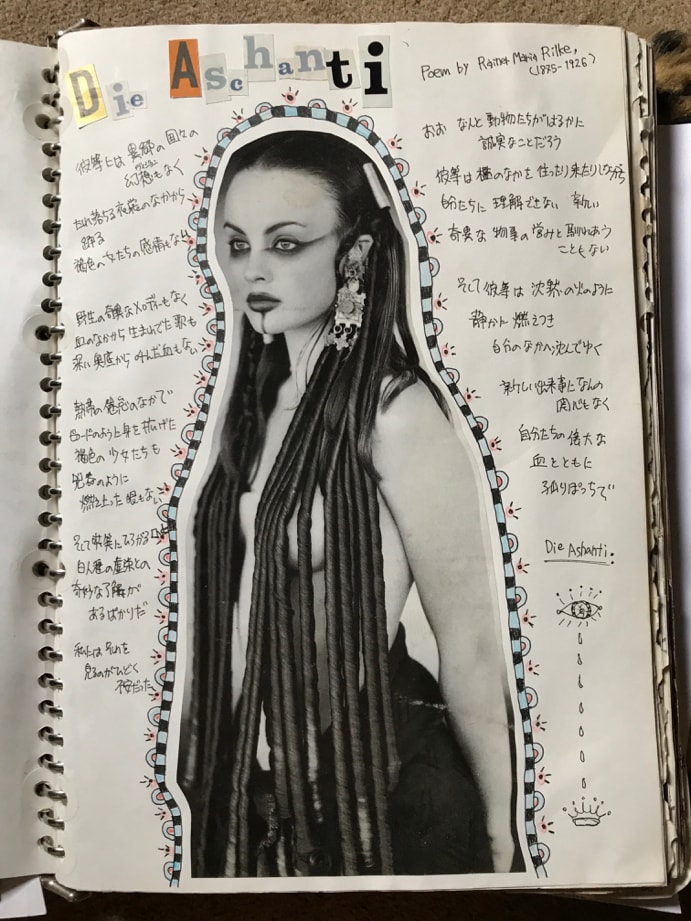 Die Aschanti
Poem by Rainer Maria Rilke,
(1875-1926)
彼等には 異郷の国々の
幻想もなく
たれ落ちる衣裳のなかから
踊る
褐色の女たちの感情もない
野生の奇異なメロディーもなく
血のなかから生まれでた歌も
深い奥底から叫んだ血もない
熱帯の倦怠のなかで
ビロードのように身を拡げた
褐色の少女たちも
のように
燃え上った眼もない
そして 笑にひろがる
白人種の虚栄との
奇妙な了解が
あるばかりだ
私にはそれを
見るのがひどく
不安だった
おお なんと動物たちがはるかに
誠実なことだろう
彼等は檻のなかを 往ったり来たりしながら
自分たちに 理解できない 新しい
奇異な 物事の営みと馴れあう
こともない
そして彼等は 沈黙の火のように
静かに 燃えつき
自分のなかへ沈んでゆく
新しい出来事になんの
関心もなく
自分たちの偉大な
血とともに
独りぼっちで
Die Ashanti.